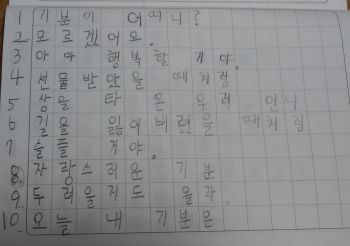 1 기분이 어떠니?
2 모르겠어요.
3 아마 행복할 거야.
4 선물받았을 때처럼
5 상을 타 온 우리 언니
6 길을 잃어버렸을 때처럼
7 슬플 거야.
8 자랑스러운 기분
9 두려울지도 몰라.
10 오늘 내 기분은